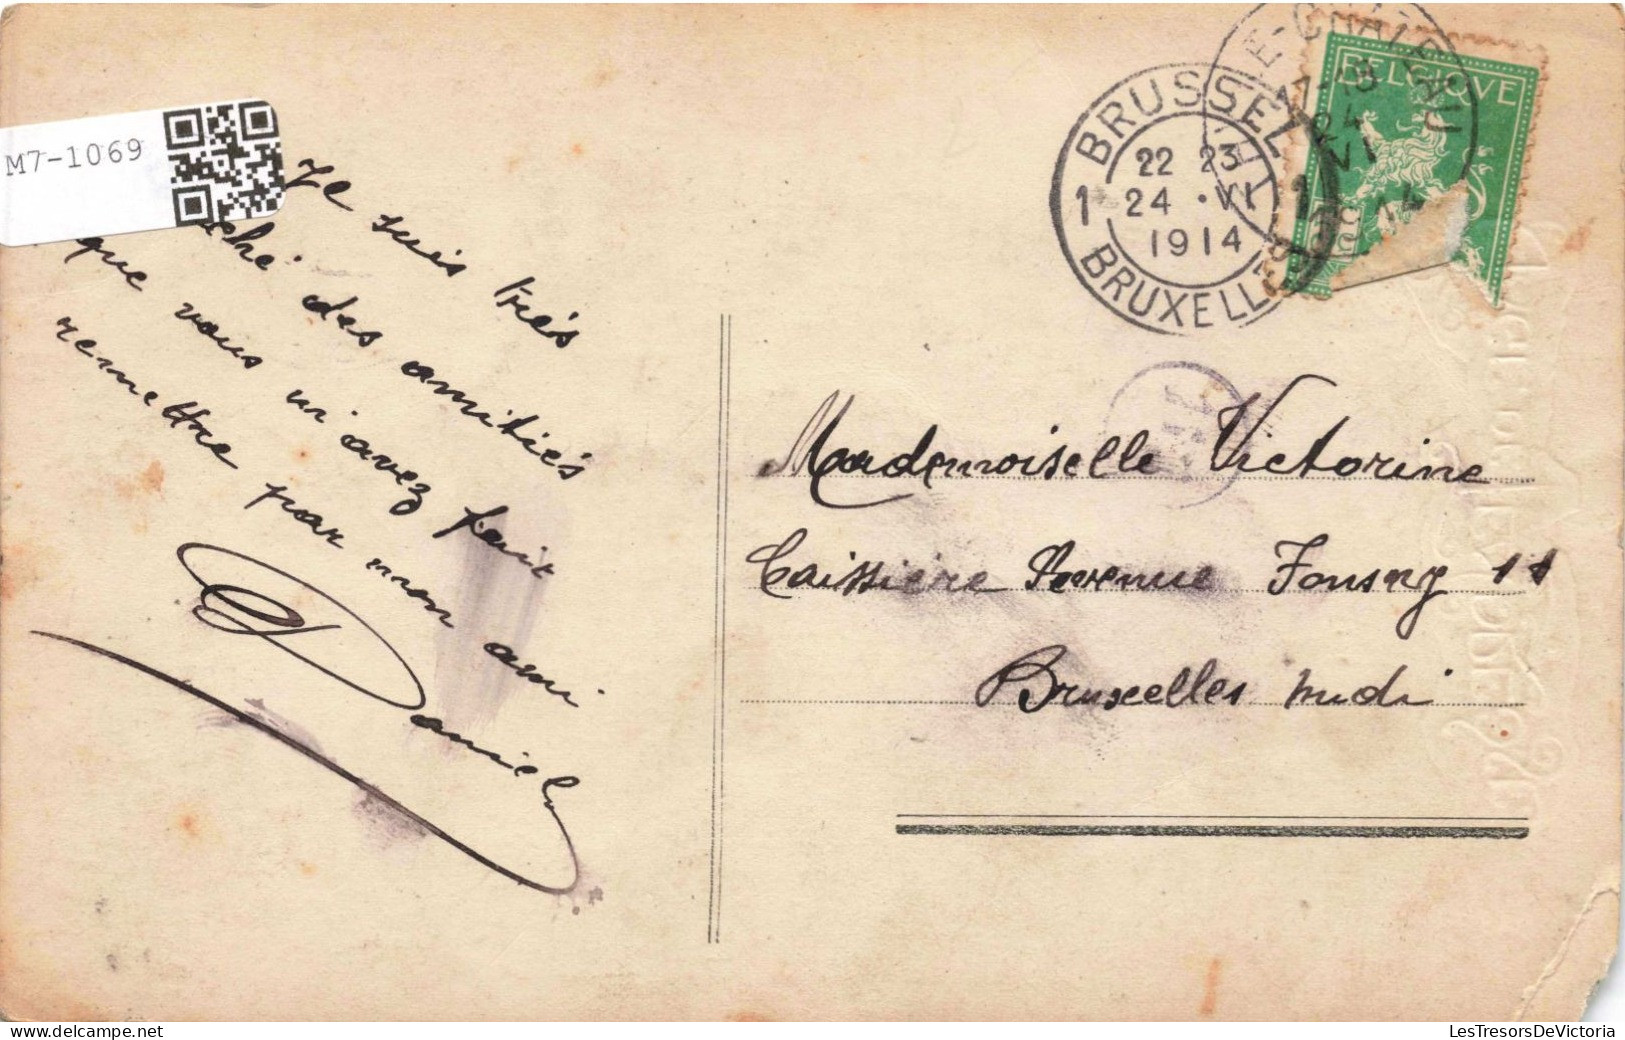 M7-1069
Je suis très
ché des amitiés
que vous m'avez fait
remettre par mon ami
Daniel
BRUSSEL
1 1
22 23
24 · VI
1914
BRUXELLES
17-18
24
VI
1914
BELGIQUE
Mademoiselle Victorine
Caissière Avenue Fonsny 11
Bruxelles midi
LesTresorsDeVictoria